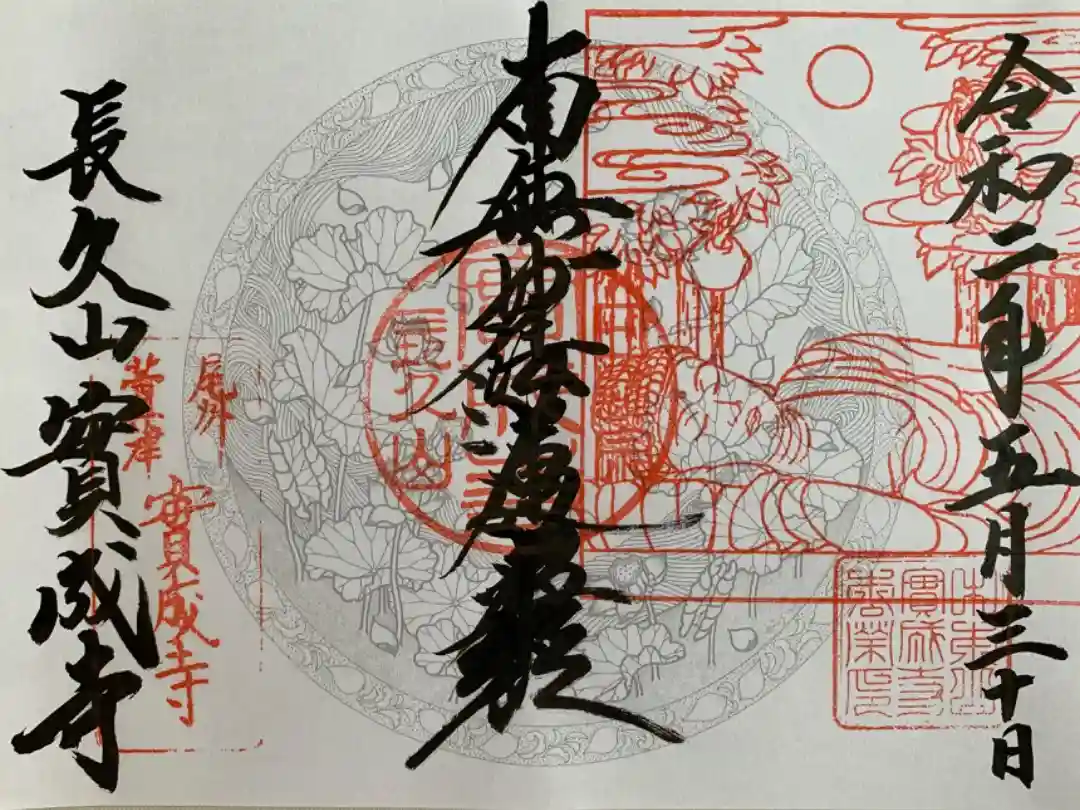 令和二年五月三十日
南無妙法蓮華経
長久山
尾州
萱津
實成寺
長久山實成寺